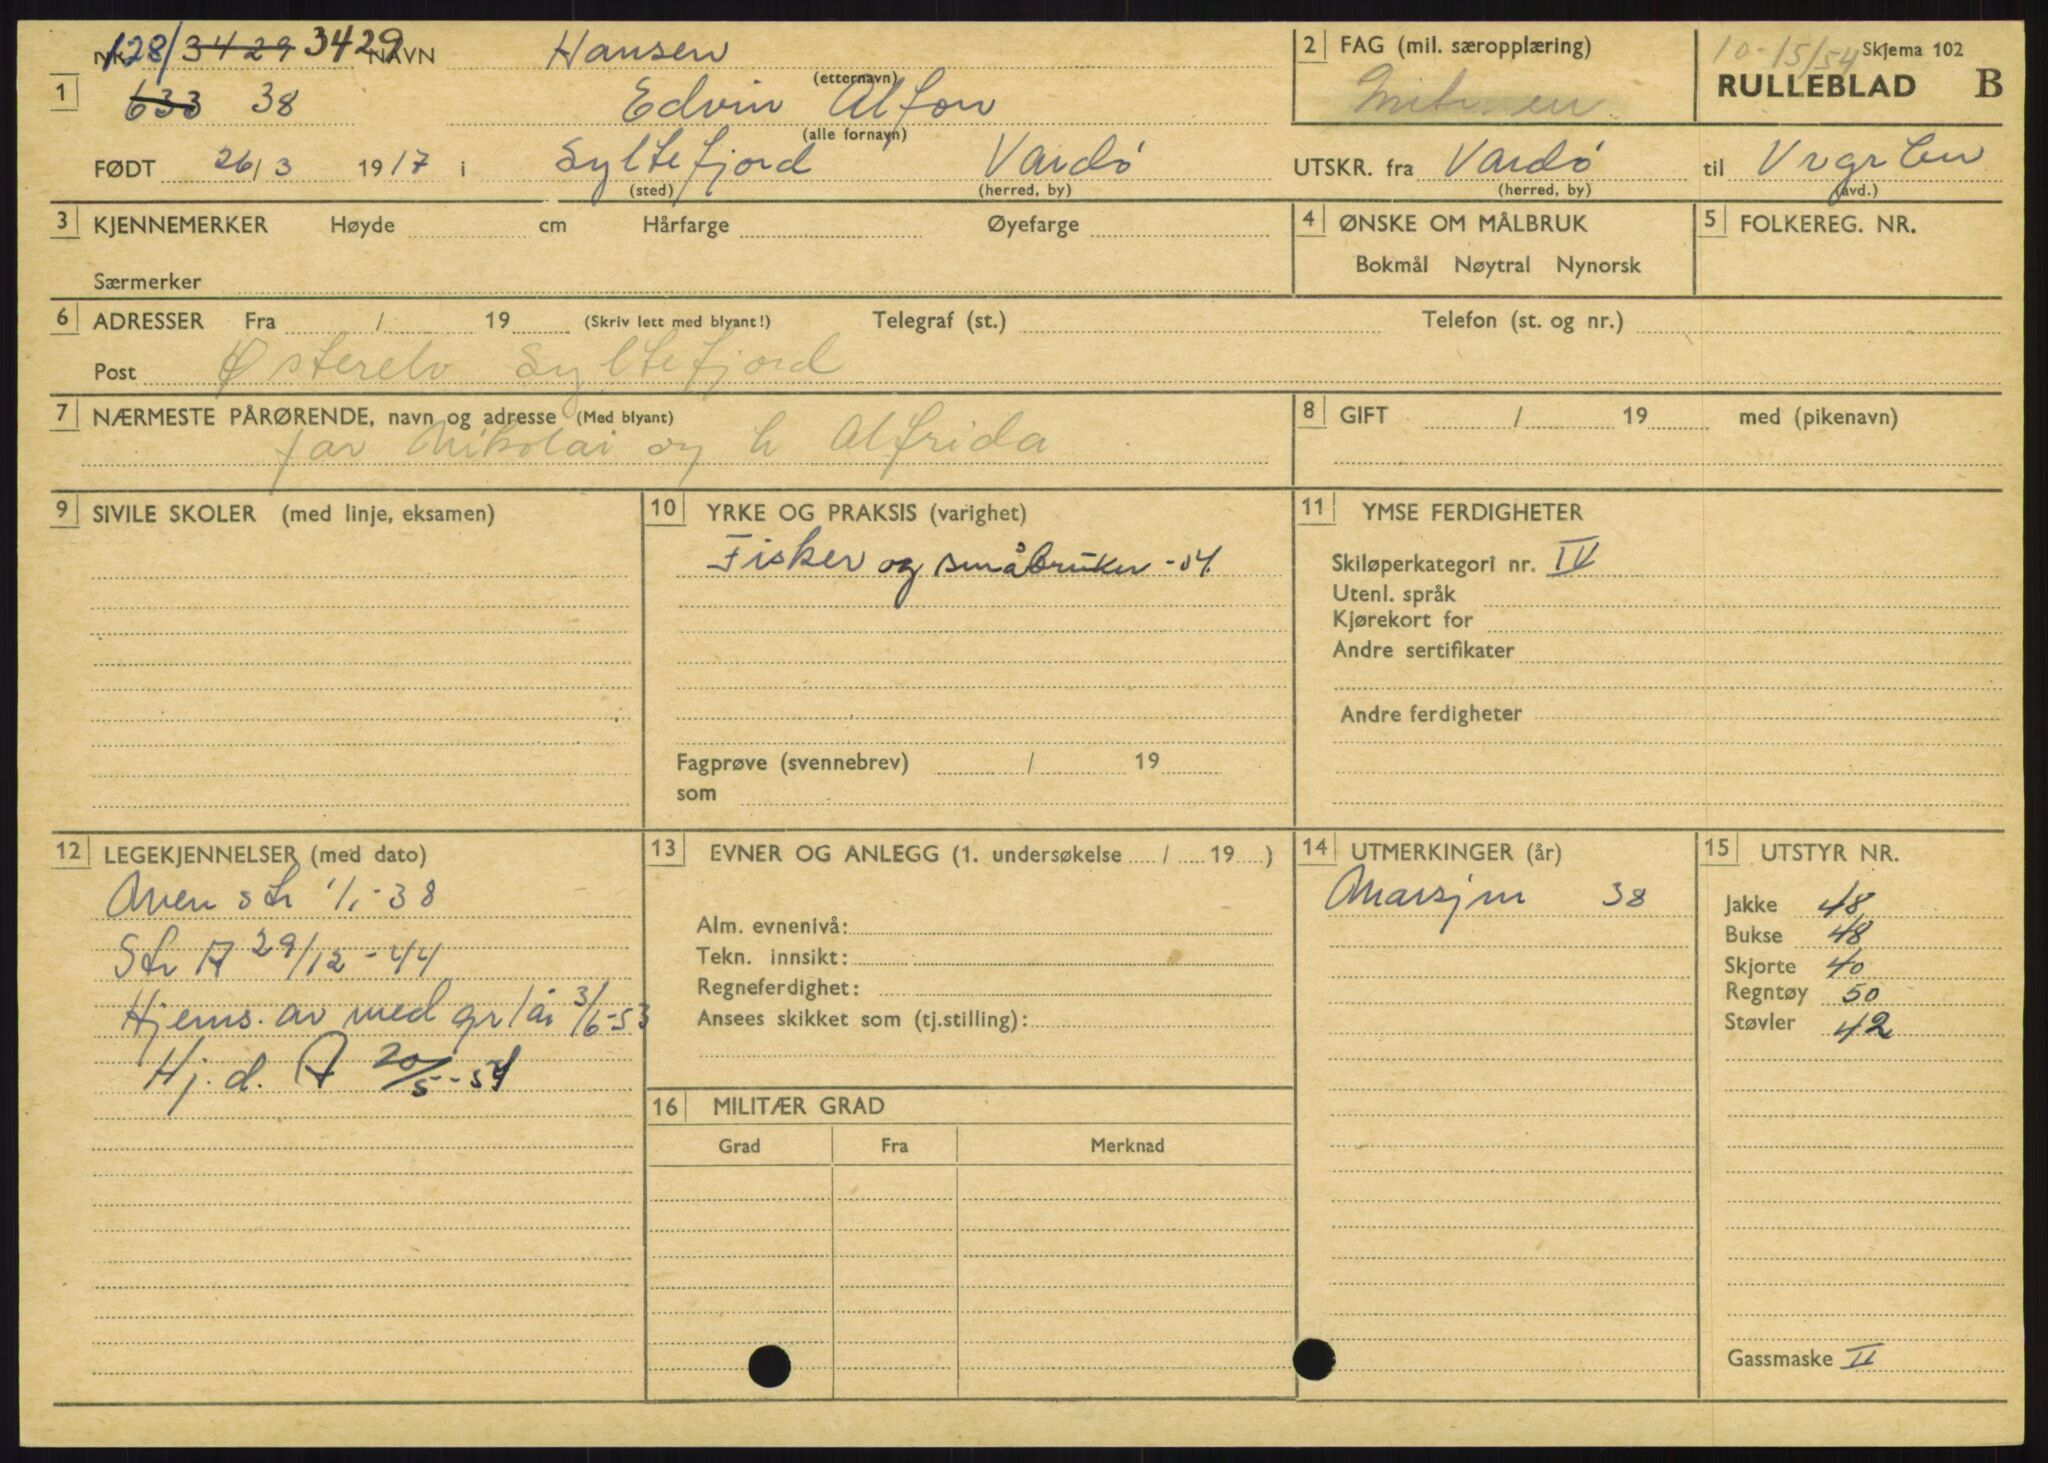 NR. 128/3429 3429 NAVN Hansen
(etternavn)
1 633 38 Edvin Alfon
(alle fornavn)
FØDT 26/3 1917 i Syltefjord Vardø
(sted) (herred, by)
2 FAG (mil. særopplæring)
10-15/54 Skjema 102
RULLEBLAD B
UTSKR. fra Vardø til
(herred, by) (avd.)
3 KJENNEMERKER Høyde cm Hårfarge Øyefarge
Særmerker
4 ØNSKE OM MÅLBRUK
Bokmål Nøytral Nynorsk
5 FOLKEREG. NR.
6 ADRESSER Fra / 19 (Skriv lett med blyant!) Telegraf (st.) Telefon (st. og nr.)
Post Østerelv Syltefjord
7 NÆRMESTE PÅRØRENDE, navn og adresse (Med blyant)
far Nikolai og h Alfrida
8 GIFT / 19 med (pikenavn)
9 SIVILE SKOLER (med linje, eksamen)
10 YRKE OG PRAKSIS (varighet)
Fisker og småbruker -54.
Fagprøve (svennebrev) / 19
som
11 YMSE FERDIGHETER
Skiløperkategori nr. IV
Utenl. språk
Kjørekort for
Andre sertifikater
Andre ferdigheter
12 LEGEKJENNELSER (med dato)
str 1/1-38
Str A 29/12-44
Hjems. av med gr 3/6-53
Hj. d. A 20/5-54
13 EVNER OG ANLEGG (1. undersøkelse / 19 )
Alm. evnenivå:
Tekn. innsikt:
Regneferdighet:
Ansees skikket som (tj.stilling):
14 UTMERKINGER (år)
Marsjm 38
15 UTSTYR NR.
Jakke 48
Bukse 48
Skjorte 40
Regntøy 50
Støvler 42
Gassmaske II
16 MILITÆR GRAD
Grad Fra Merknad